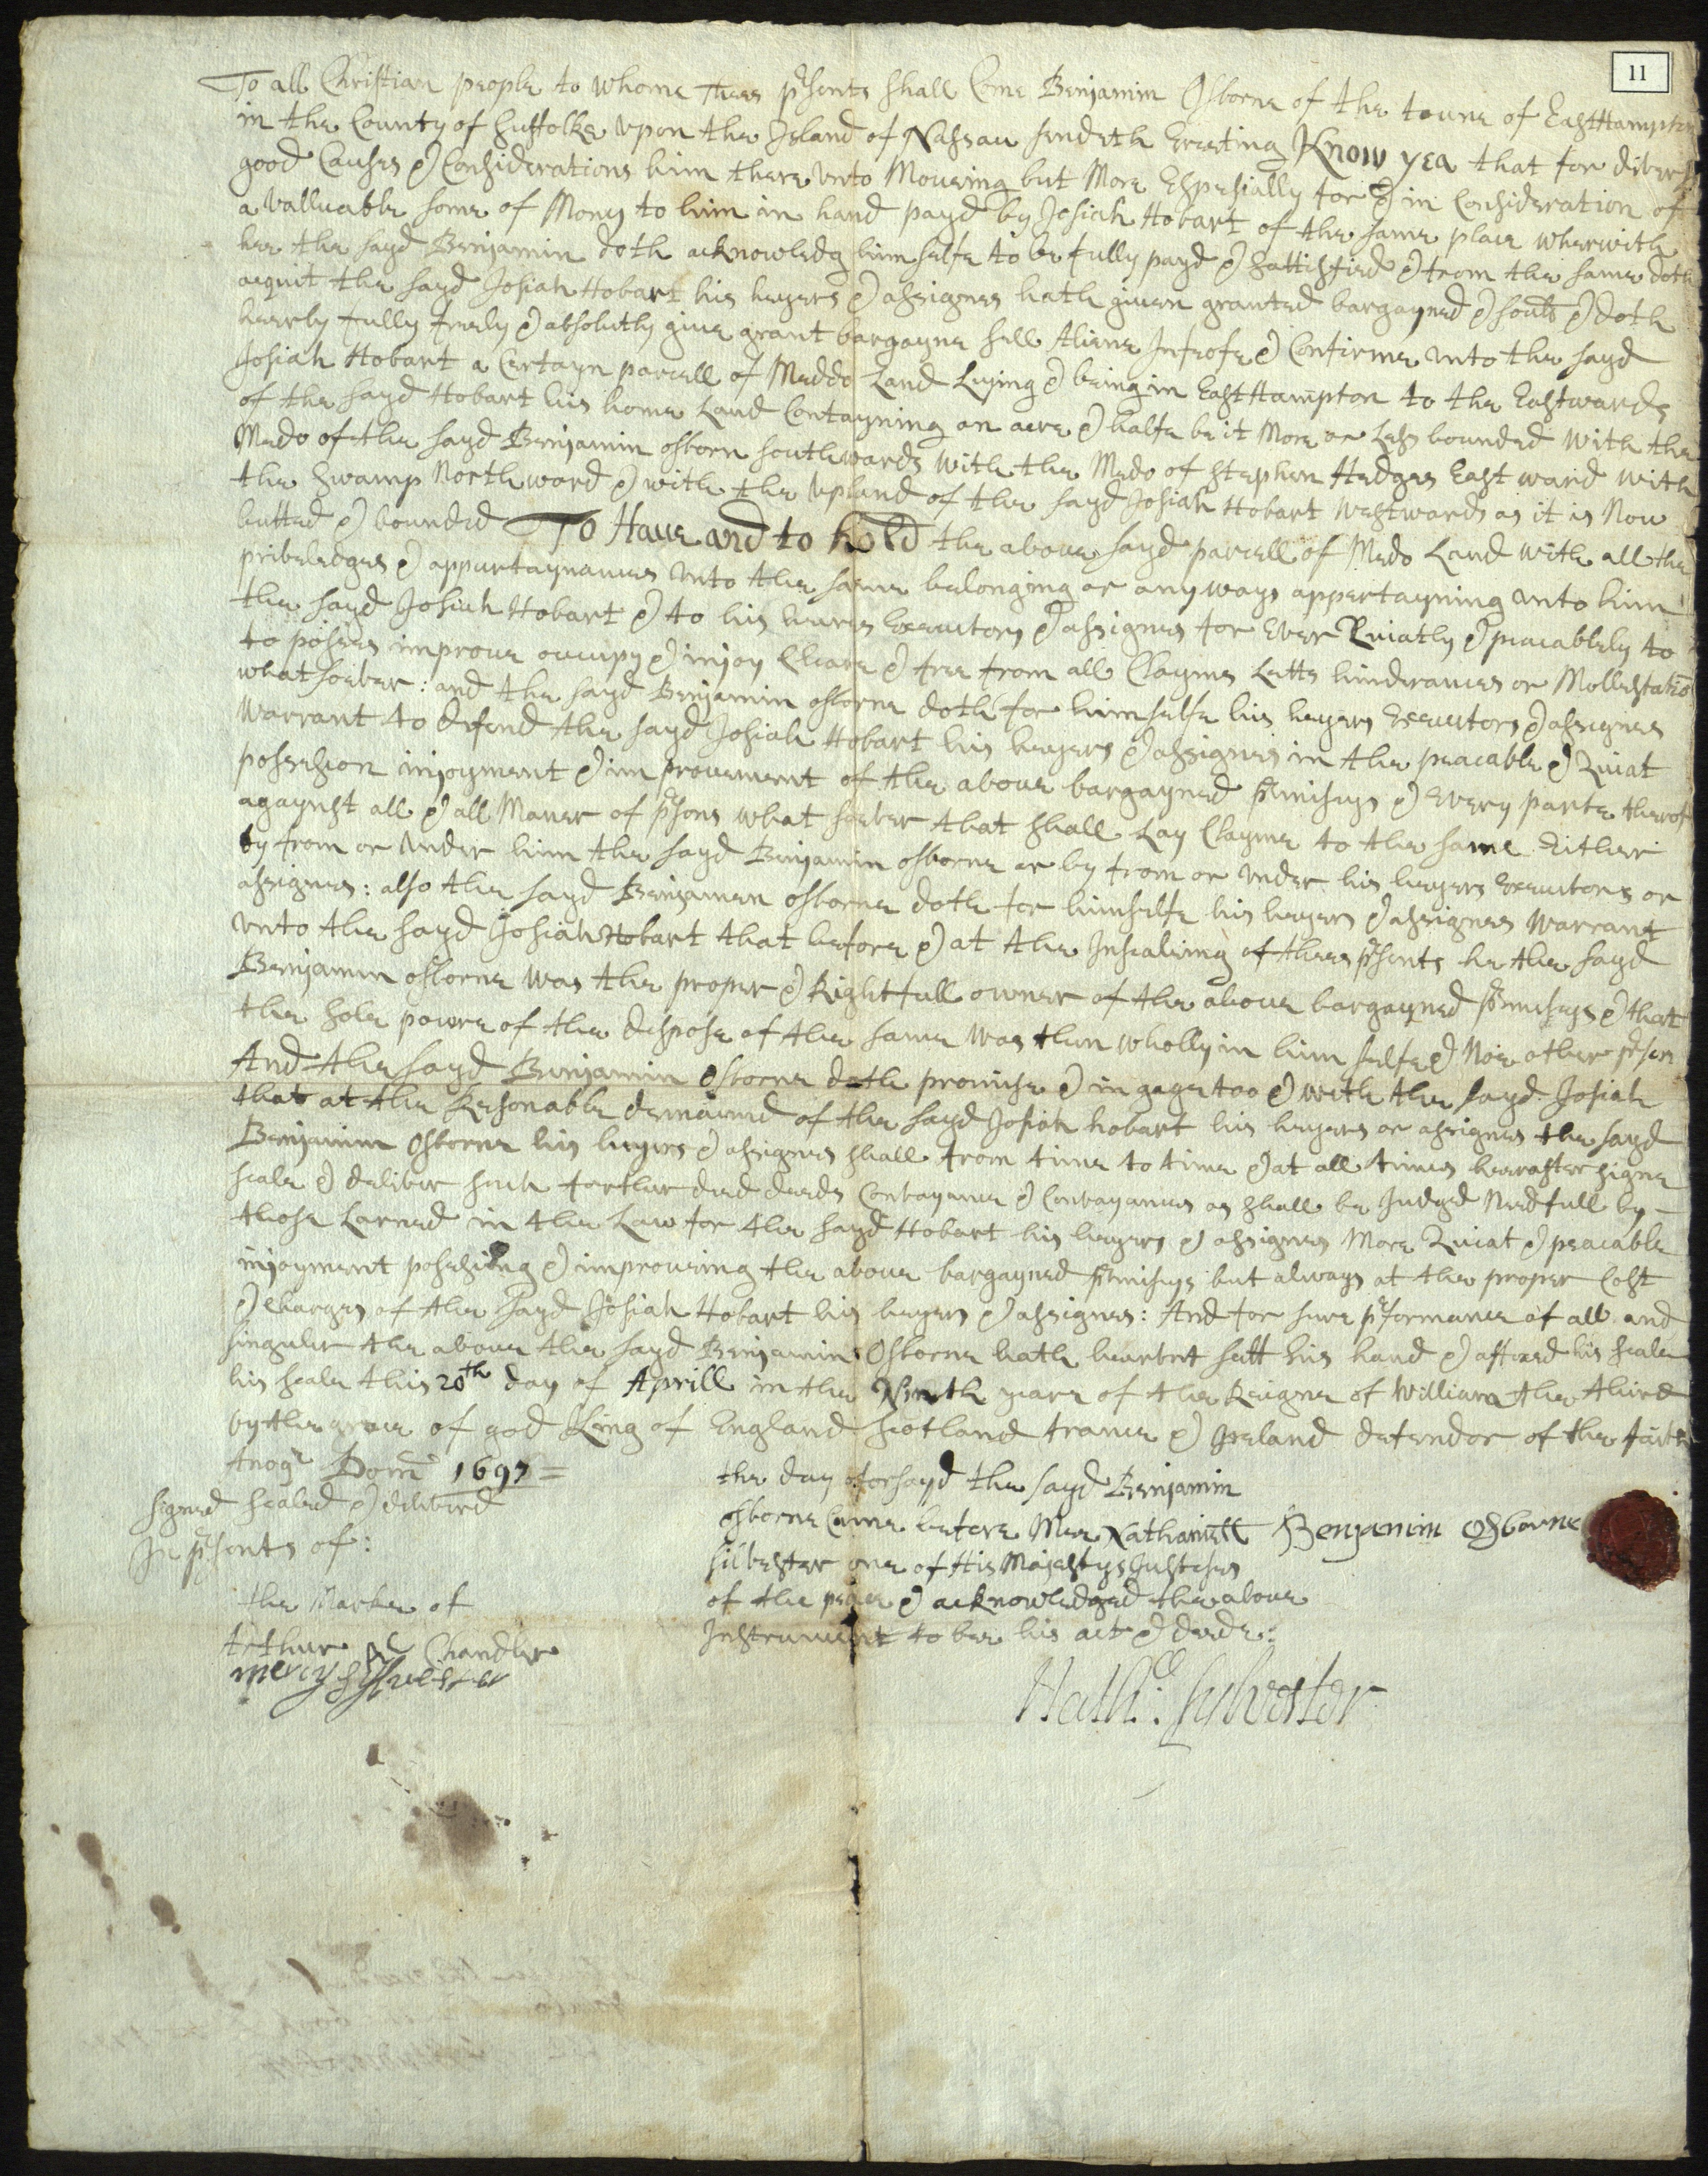 11
To all Christian people to whome Thees prsents shall Come Benjamin Osborne of the towne of EastHampton
in the County of Suffolke upon the Island of Nassau sendeth Greeting Know yea that for divers
good Causes & Considerations him there unto Moueing but More Espesially for & in Consideration of
a valluable some of Mony to him in hand payd by Josiah Hobart of the same place wherwith
hee the sayd Benjamin doth acknowledg him selfe to be fully payd & sattisfied & from the same doth
acquit the sayd Josiah Hobart his heyers & assignes hath given granted bargayned & sould & doth
heerby fully freely & absolutly give grant bargayne sell Aliene Infeofe & Confirme unto the sayd
Josiah Hobart a Certayn parcell of Meddo Land Lying & being in EastHampton to the Eastwards
of the sayd Hobart his home Land Contayning an acre & halfe be it More or Less bounded with the
Medo of the sayd Benjamin osborn southwards with the Medo of Stephen Hedges East ward with
the Swamp North word & with the upland of the sayd Josiah Hobart westwards as it is Now
butted & bounded To Haue and to hold the aboue sayd parcell of Medo Land with all the
priveledges & appurtaynances unto the same belonging or any ways appertayning unto him
the sayd Josiah Hobart & to his heires Executors & assignes for Ever Quiatly & peacablely to
to posses improve occupy & injoy Cleare & free from all Clayms Letts hinderances or Mollestatio
whatsoever: and the sayd Benjamin osborne doth for himselfe his heyers Executors & assignes
warrant to defend the sayd Josiah Hobart his heyers & assignes in the peacable & Quiat
possesion injoyment & improuement of the aboue bargayned prmiseys & Every parte therof
agaynst all & all Maner of prsons what soever that shall Lay Clayme to the same Either
by from or under him the sayd Benjamin osborne or by from or under his heyers Executors or
assignes: also the sayd Benjamen osborne doth for himselfe his heyers & assignes warrant
unto the sayd Josiah Hobart that before & at the Insealeing of thees prsents he the sayd
Benjamin osborne was the proper & Rightfull owner of the aboue bargayned prmiseys & that
the Sole powre of the dispose of the same was then wholly in him selfe & Noe other prson
And the sayd Benjamin Osborne doth promise & in gage too & with the sayd Josiah
that at the Resonable demaund of the sayd Josiah hobart his heyers or assignes the sayd
Benjamin Osborne his heyers & assignes shall from time to time & at all times heerafter signe
seale & deliver such farther deed deeds Convayance & Convayances as shall be Judged Needfull by
those Larned in the Law for the sayd Hobart his heyers & assignes More Quiat & peacable
injoyment possesing & improueing the aboue bargayned prmiseys but always at the proper Cost
& Charges of the sayd Josiah Hobart his heyers & assignes: And for sure prformance of all and
singuler the aboue the sayd Benjamin Osborne hath heerunt sett his hand & affixed his seale
his seale this 20th day of Aprill in the Ninth yeare of the Reigne of William the third
by the grace of god King of England Scotland france & Ireland defendor of the faith
Anoqe Dom 1697 =
Signed Sealed & delivred
In prsents of:
the Marke of
Arthur AC Chandler
mercy Sylvester
the day aforsayd the sayd Benjamin
osborne Came before Mee Nathaniell
Silvester one of His Majestys Justeses
of the peace & acknowledged the aboue
Instrument to bee his act & deede:
Benjamin Osborne
Nathll: Sylvester